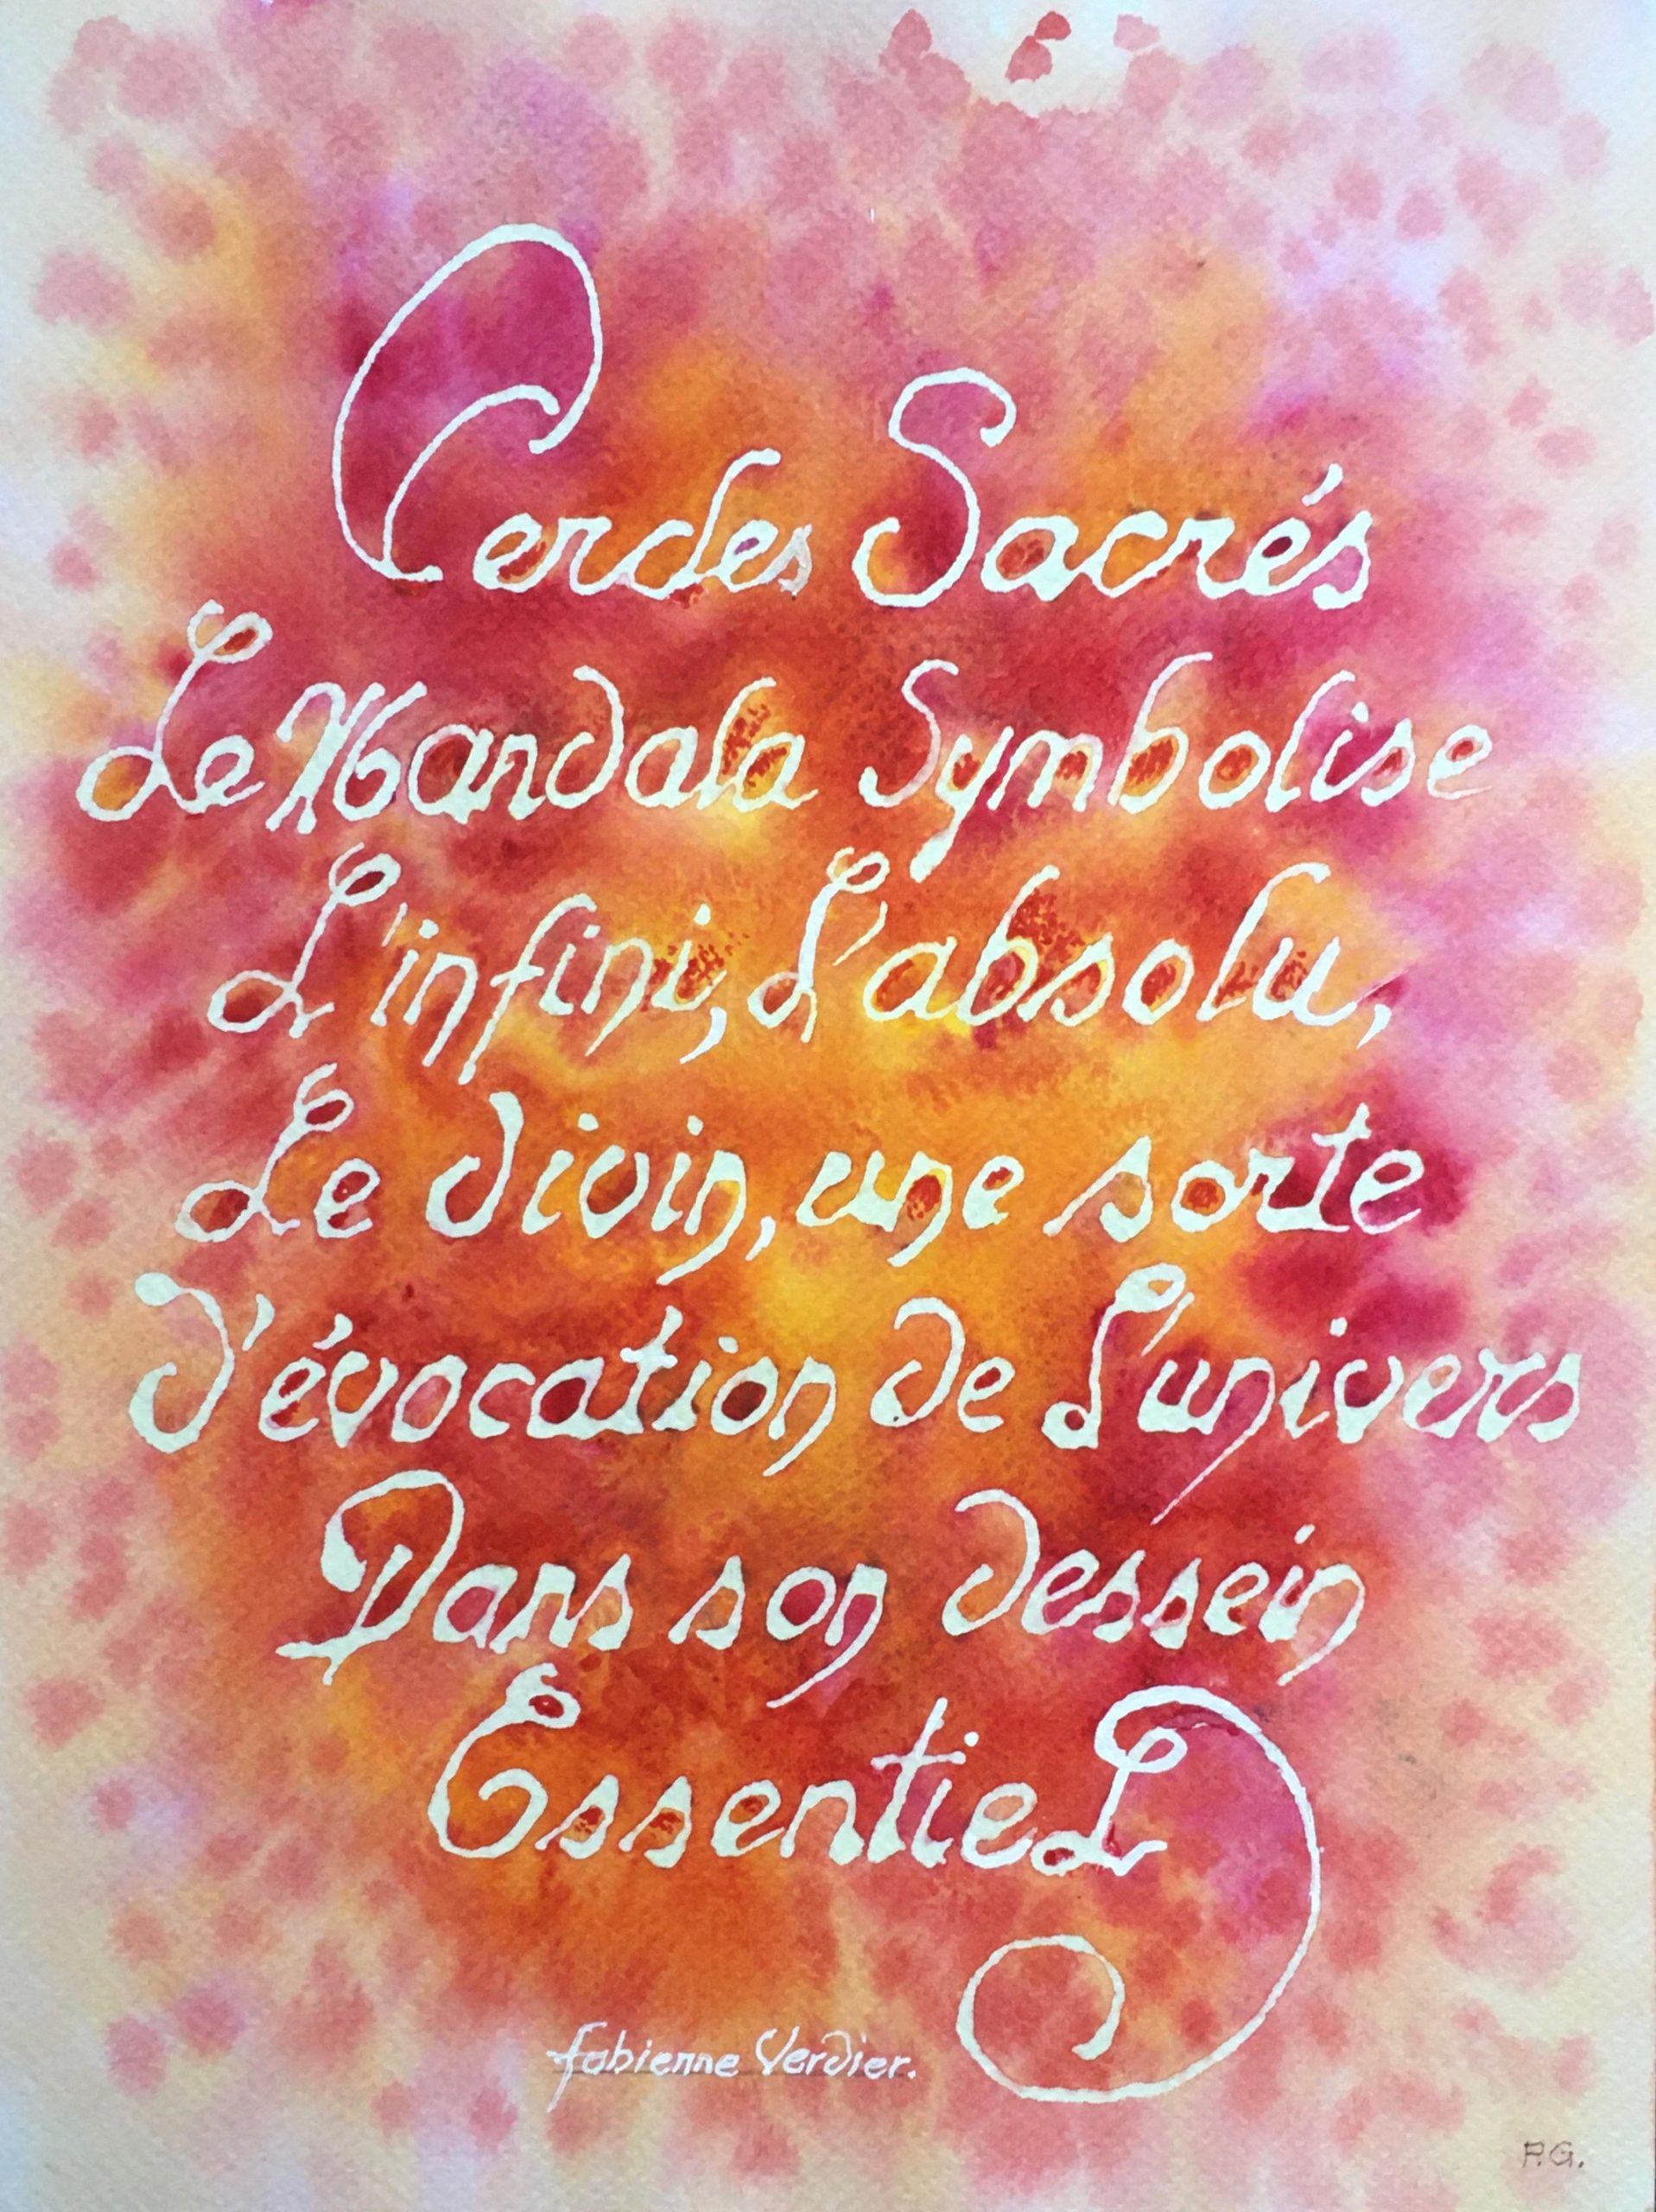 Cercles Sacrés
Le Mandala Symbolise
L'infini, L'absolu,
Le divin, une sorte
D'évocation de L'univers
Dans son dessein
EssentieL
fabienne Verdier.
P.G.